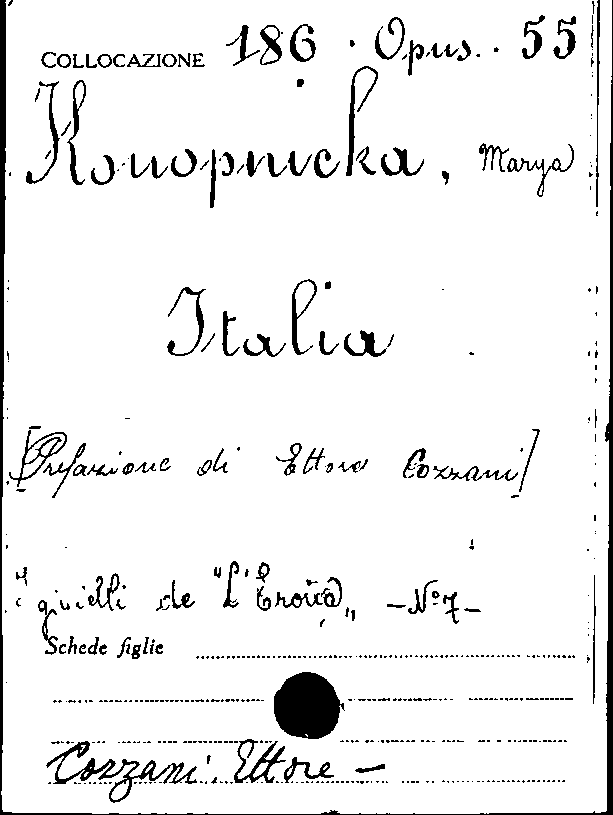 COLLOCAZIONE 186 . Opus. . 55
Konopnicka, Marya
Italia
[Prefazione di Ettore Cozzani]
"I gioielli de "L'Eroica" - Nº 7 -
Schede figlie
Cozzani. Ettore -